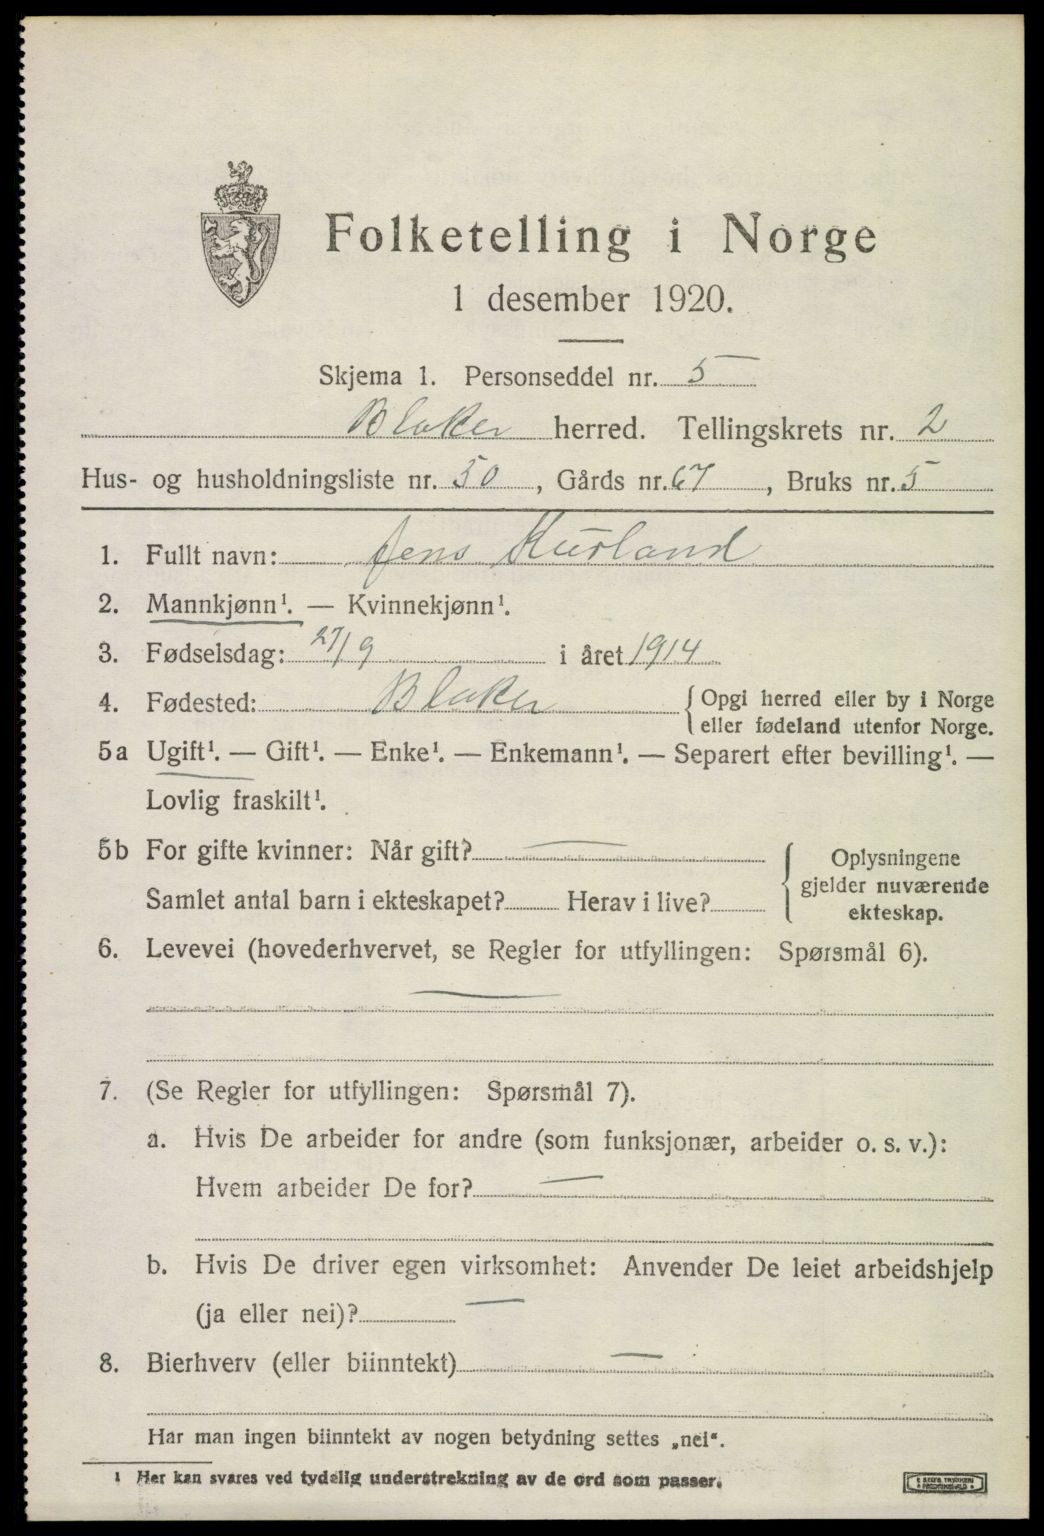 Folketelling i Norge
1 desember 1920.
Skjema 1. Personseddel nr. 5
Blaker herred. Tellingskrets nr. 2
Hus- og husholdningsliste nr. 50, Gårds nr. 67, Bruks nr. 5
1. Fullt navn: Jens Kurland
2. Mannkjønn¹. — Kvinnekjønn¹.
3. Fødselsdag: 27/9 i året 1914
4. Fødested: Blaker { Opgi herred eller by i Norge
eller fødeland utenfor Norge.
5a Ugift¹. — Gift¹. — Enke¹. — Enkemann¹. — Separert efter bevilling¹. —
Lovlig fraskilt¹.
5b For gifte kvinner: Når gift? —
Samlet antal barn i ekteskapet? Herav i live?
{ Oplysningene
gjelder nuværende
ekteskap.
6. Levevei (hovederhvervet, se Regler for utfyllingen: Spørsmål 6).
—
7. (Se Regler for utfyllingen: Spørsmål 7).
a. Hvis De arbeider for andre (som funksjonær, arbeider o. s. v.):
Hvem arbeider De for? —
b. Hvis De driver egen virksomhet: Anvender De leiet arbeidshjelp
(ja eller nei)? —
8. Bierhverv (eller biinntekt) —
Har man ingen biinntekt av nogen betydning settes „nei“.
¹ Her kan svares ved tydelig understrekning av de ord som passer.